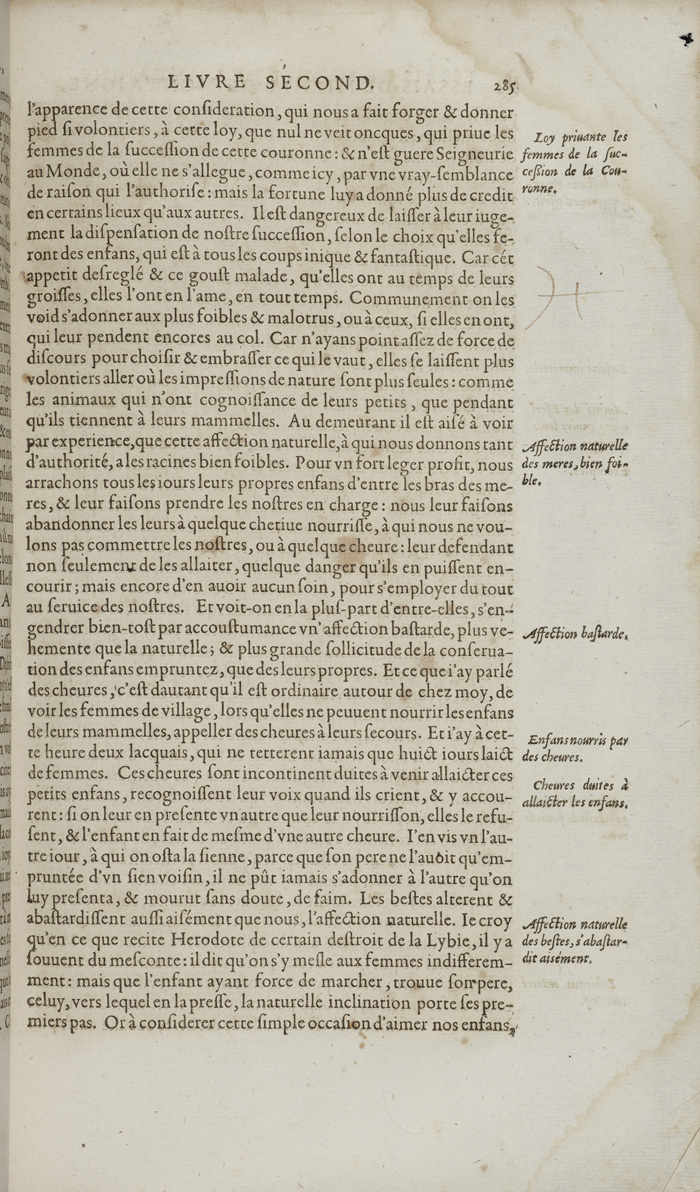 LIVRE SECOND. 285
l'apparence de cette consideration, qui nous a fait forger & donner
pied si volontiers, à cette loy, que nul ne veit oncques, qui priue les
femmes de la succession de cette couronne: & n'est guere Seigneurie
au Monde, où elle ne s'allegue, comme icy, par vne vray-semblance
de raison qui l'authorise: mais la fortune luy a donné plus de credit
en certains lieux qu'aux autres. Il est dangereux de laisser à leur iuge-
ment la dispensation de nostre succession, selon le choix qu'elles fe-
ront des enfans, qui est à tous les coups inique & fantastique. Car cét
appetit desreglé & ce goust malade, qu'elles ont au temps de leurs
groisses, elles l'ont en l'ame, en tout temps. Communement on les
void s'adonner aux plus foibles & malotrus, ou à ceux, si elles en ont,
qui leur pendent encores au col. Car n'ayans point assez de force de
discours pour choisir & embrasser ce qui le vaut, elles se laissent plus
volontiers aller où les impressions de nature sont plus seules: comme
les animaux qui n'ont cognoissance de leurs petits, que pendant
qu'ils tiennent à leurs mammelles. Au demeurant il est aisé à voir
par experience, que cette affection naturelle, à qui nous donnons tant
d'authorité, a les racines bien foibles. Pour vn fort leger profit, nous
arrachons tous les iours leurs propres enfans d'entre les bras des me-
res, & leur faisons prendre les nostres en charge: nous leur faisons
abandonner les leurs à quelque chetiue nourrisse, à qui nous ne vou-
lons pas commettre les nostres, ou à quelque cheure: leur defendant
non seulement de les allaiter, quelque danger qu'ils en puissent en-
courir; mais encore d'en auoir aucun soin, pour s'employer du tout
au seruice des nostres. Et voit-on en la plus-part d'entre-elles, s'en-
gendrer bien-tost par accoustumance vn'affection bastarde, plus ve-
hemente que la naturelle; & plus grande sollicitude de la conserua-
tion des enfans empruntez, que des leurs propres. Et ce que i'ay parlé
des cheures, c'est dautant qu'il est ordinaire autour de chez moy, de
voir les femmes de village, lors qu'elles ne peuuent nourrir les enfans
de leurs mammelles, appeller des cheures à leurs secours. Et i'ay à cet-
te heure deux lacquais, qui ne tetterent iamais que huict iours laict
de femmes. Ces cheures sont incontinent duites à venir allaicter ces
petits enfans, recognoissent leur voix quand ils crient, & y accou-
rent: si on leur en presente vn autre que leur nourrisson, elles le refu-
sent, & l'enfant en fait de mesme d'vne autre cheure. I'en vis vn l'au-
tre iour, à qui on osta la sienne, parce que son pere ne l'auoit qu'em-
pruntée d'vn sien voisin, il ne pût iamais s'adonner à l'autre qu'on
luy presenta, & mourut sans doute, de faim. Les bestes alterent &
abastardissent aussi aisément que nous, l'affection naturelle. Ie croy
qu'en ce que recite Herodote de certain destroit de la Lybie, il y a
souuent du mesconte: il dit qu'on s'y mesle aux femmes indifferem-
ment: mais que l'enfant ayant force de marcher, trouue son pere,
celuy, vers lequel en la presse, la naturelle inclination porte ses pre-
miers pas. Or à considerer cette simple occasion d'aimer nos enfans,
Loy priuante les
femmes de la suc-
cession de la Cou-
ronne.
Affection naturelle
des meres, bien foi-
ble.
Affection bastarde.
Enfans nourris par
des cheures.
Cheures duites à
allaicter les enfans.
Affection naturelle
des bestes, s'abastar-
dit aisément.